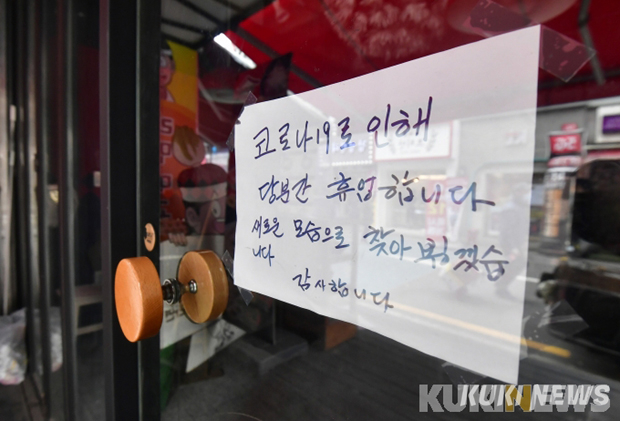 코로나19로 인해
당분간 휴업합니다
새로운 모습으로 찾아 뵙겠습
니다
감사합니다
KUKI NEWS
KUKI NEWS